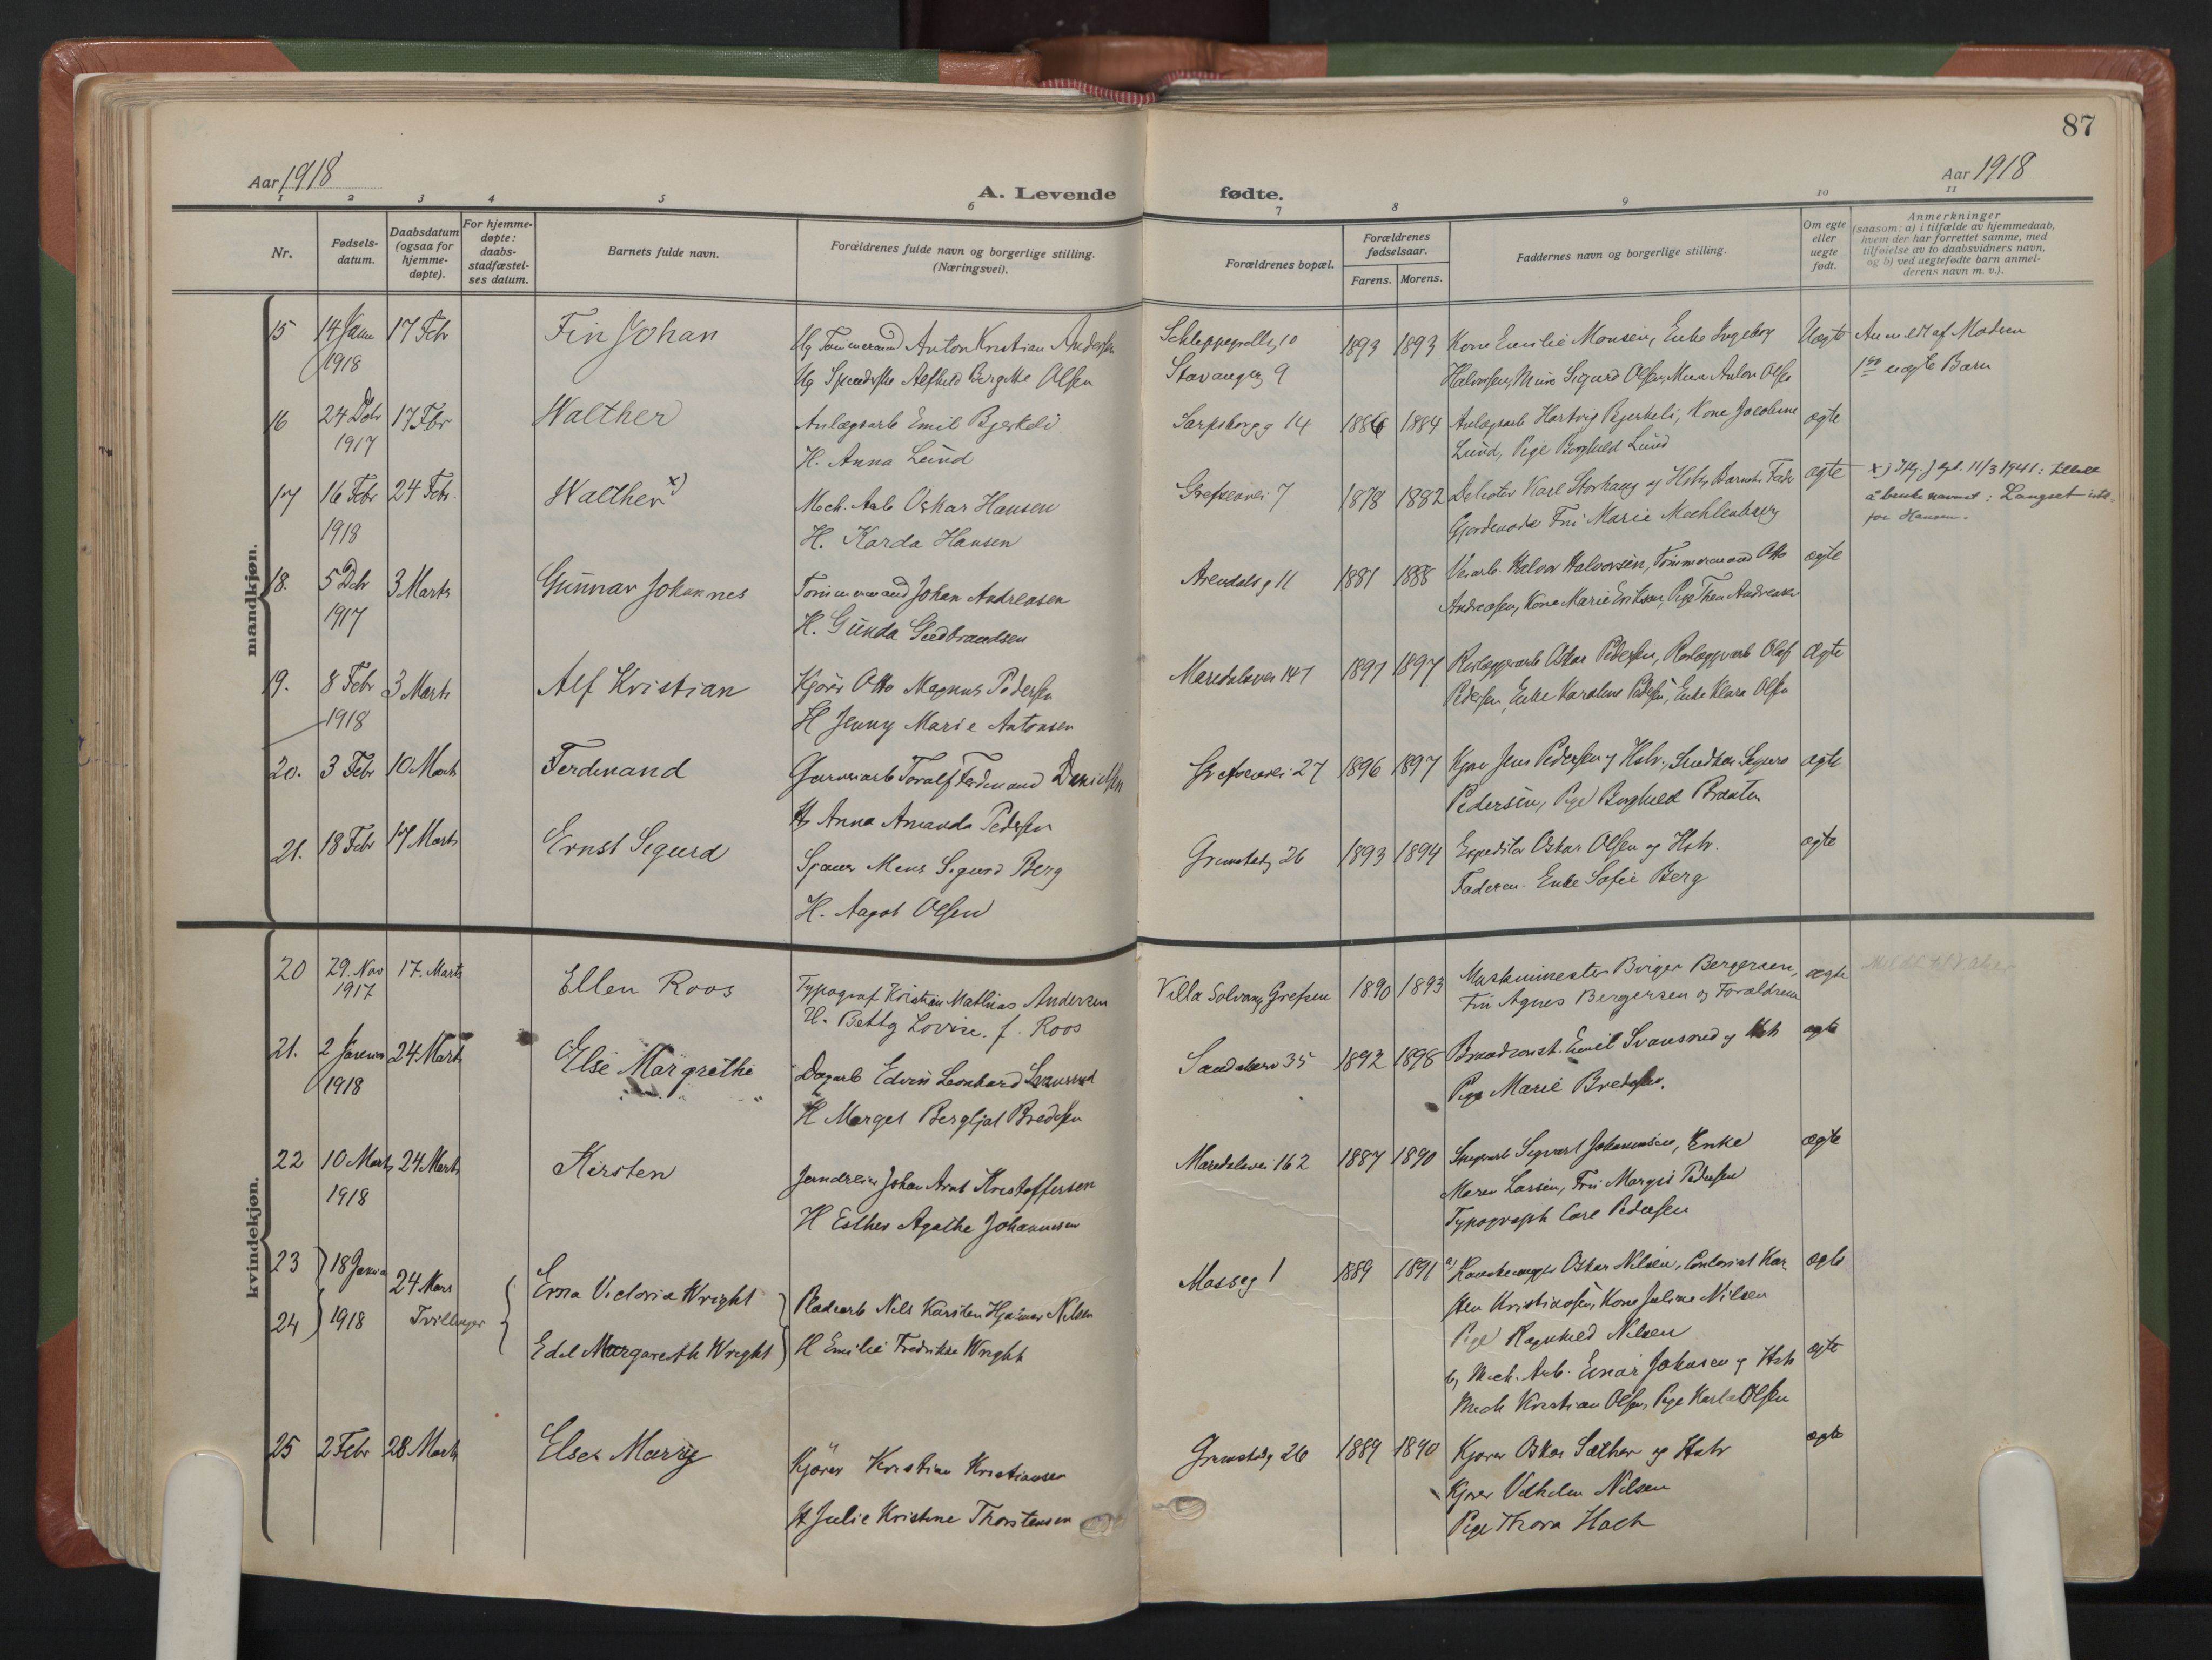 87
Aar 1918
A. Levende
fødte.
Aar 1918
1 2 3 4 5 6 7 8 9 10 11
Nr.
Fødsels-
datum.
Daabsdatum
(ogsaa for
hjemme-
døpte).
For hjemme-
døpte:
daabs-
stadfæstel-
ses datum.
Barnets fulde navn.
Forældrenes fulde navn og borgerlige stilling.
(Næringsvei).
Forældrenes bopæl.
Forældrenes
fødselsaar.
Farens. Morens.
Faddernes navn og borgerlige stilling.
Om egte
eller
uegte
født.
Anmerkninger
(saasom: a) i tilfælde av hjemmedaab,
hvem der har forrettet samme, med
tilføielse av to daabsvidners navn,
og b) ved uegtefødte barn anmel-
derens navn m. v.).
mandkjøn.
15 14 Janu 17 Febr Fin Johan Ug Tømmermand Anton Kristian Andersen Schleppegrellsg 10 1893 1893 Kone Emilie Monsen, Enke Ingeborg Uægte Anmeldt af Modren
1918 Ug Alfhild Bergitte Olsen Stavangerg 9 Halvorsen, Sigurd Olsen, Anton Olsen 1ste uægte Barn
16 24 Debr 17 Fbr Walther Anlægsarb Emil Bjerkeli Sarpsborgg 14 1886 1884 Anlægsarb Hartvig Bjerkeli, Kone Jacobine ægte
1917 H. Anna Lund Lund, Pige Borghild Lund
17 16 Febr 24 Febr. Walther x) Mech. Arb Oskar Hansen Grefsenvei 7 1878 1882 Karl Storhaug og Hstr, Barnets Fader ægte x) 11/3 1941: tillatt
1918 H. Karda Hansen Gjordemoder Frü Marie Mechlenburg å bruke navnet: Langset istf.
for Hansen.
18. 5 Debr 3 Marts Gunnar Johannes Tømmermand Johan Andreasen Arendalsg 11 1881 1888 Halvor Halvorsen, Tømmermand Otto ægte
1917 H. Gunda Gudbrandsen Andreasen, Kone Marie Eriksen, Pige Thea Andreasen
19. 8 Febr 3 Marts Alf Kristian Kjører Otto Magnus Pedersen Maridalsvei 147 1897 1897 Oskar Pedersen, Olaf Ægte
1918 H Jenny Marie Antonsen Pedersen, Enke Karoline Pedersen, Enke Klara Olsen
20. 3 Febr 10 Marts Ferdinand Garveriarb Toralf Ferdinand Danielsen Grefsenvei 27 1896 1897 Kjører Jens Pedersen og Hstr., Sigurd ægte
H Anna Amanda Pedersen Pedersen, Pige Borghild Braaten
21. 18 Febr 17 Marts Ernst Sigurd Mons Sigurd Berg Grimstadg 26 1893 1894 Expeditør Oskar Olsen og Hstr. ægte
H. Aagot Olsen Faderen. Enke Sofie Berg
kvindekjøn.
20 29. Nov 17. Marts Ellen Roos Typograf Kristian Mathias Andersen Villa Solvang, Grefsen 1890 1893 Maskinmester Birger Bergersen, ægte
1917 H. Betty Lovise. f. Roos Frü Agnes Bergersen og Forældrene
21. 2 Januar 24 Marts Else Margrethe Dagarb Edvin Leonhard Svansrud Sandakerv 35 1892 1898 Brandconst. Emil Svansrud og Hstr ægte
1918 H Margit Bergljot Bredesen Pige Marie Bredesen.
22 10 Marts 24 Marts Kirsten Jerndreier Johan Arnt Kristoffersen Maridalsvei 162 1887 1890 Sigvart Johannesen, Enke ægte
1918 H Esther Agathe Johannesen Maren Larsen, Frü Margit Pedersen
Typograph Carl Pedersen
23 18 Janua 24 Mars Erna Victoria Wright Nils Karsten Hjalmar Nilsen Mosseg 1 1889 1891 a) Oskar Nilsen, Contorist Kar- ægte
24 1918 Tvillinger sten Kristiansen, Kone Juline Nilsen
Edel Margareth Wright H Emilie Fredrikke Wright Pige Ragnhild Nilsen
b) Mech. Arb. Einar Johnsen og Hstr ægte
Mech Kristian Olsen, Pige Karla Olsen
25 2 Febr 28 Marts Else Marry Kjører Kristian Kristiansen Grimstadg 26 1889 1890 Kjører Oskar Sæther og Hstr ægte
H Julie Kristine Thorstensen Kjører Vilhelm Nilsen
Pige Thora Hoch